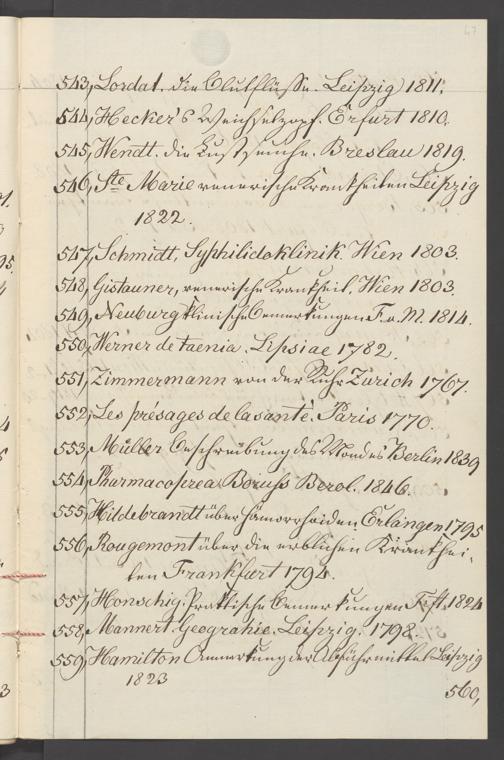 47
543, Lordat. die Blutflüsse. Leipzig 1811.
544, Hecker's Weichselzopf. Erfurt 1810.
545, Wendt. die Lustseuche. Breslau 1819.
546, Ste Marie venerische Krankheiten Leipzig
1822.
547, Schmidt, Syphilidoklinik Wien 1803.
548, Gistauner, venerische Krankheit. Wien 1803.
549, Neuburg klinische Bemerkungen F. a. M. 1814.
550, Werner de taenia. Lipsiae 1782.
551, Zimmermann von der Ruhr Zurich 1767.
552, Les présages de la santé. Paris 1770.
553, Müller Beschreibung des Mondes Berlin 1839
554, Pharmacopoea Boruss Berol. 1846.
555, Hildebrandt über Hämorrhoiden Erlangen 1795
556, Rougemont über die erblichen Krankhei-
ten Frankfurt 1794.
557, Honschig. Praktische Bemerkungen 1824
558, Mannert Geograhie. Leipzig. 1798
559, Hamilton Anmerkung der Abführmittel Leipzig
1823
560,